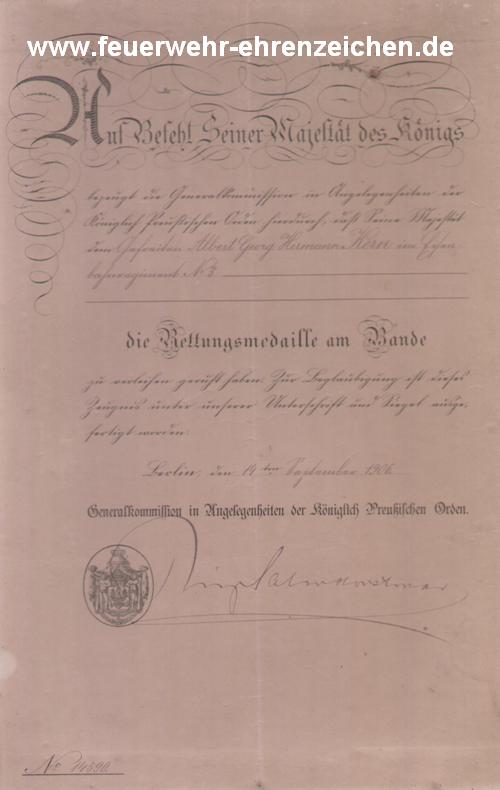 www.feuerwehr-ehrenzeichen.de
Auf Befehl Seiner Majestät des Königs
bezeugt die Generalkommission in Angelegenheiten der
Königlich Preußischen Orden hierdurch, daß Seine Majestät
dem Gefreiten Albert Georg Hermann Kern im Eisen-
bahnregiment No 3
die Rettungsmedaille am Bande
zu verleihen geruht haben. Zur Beglaubigung ist dieses
Zeugnis unter unserer Unterschrift und Siegel ausge-
fertigt worden.
Berlin, den 14ten September 1906.
Generalkommission in Angelegenheiten der Königlich Preußischen Orden.
No 14590.